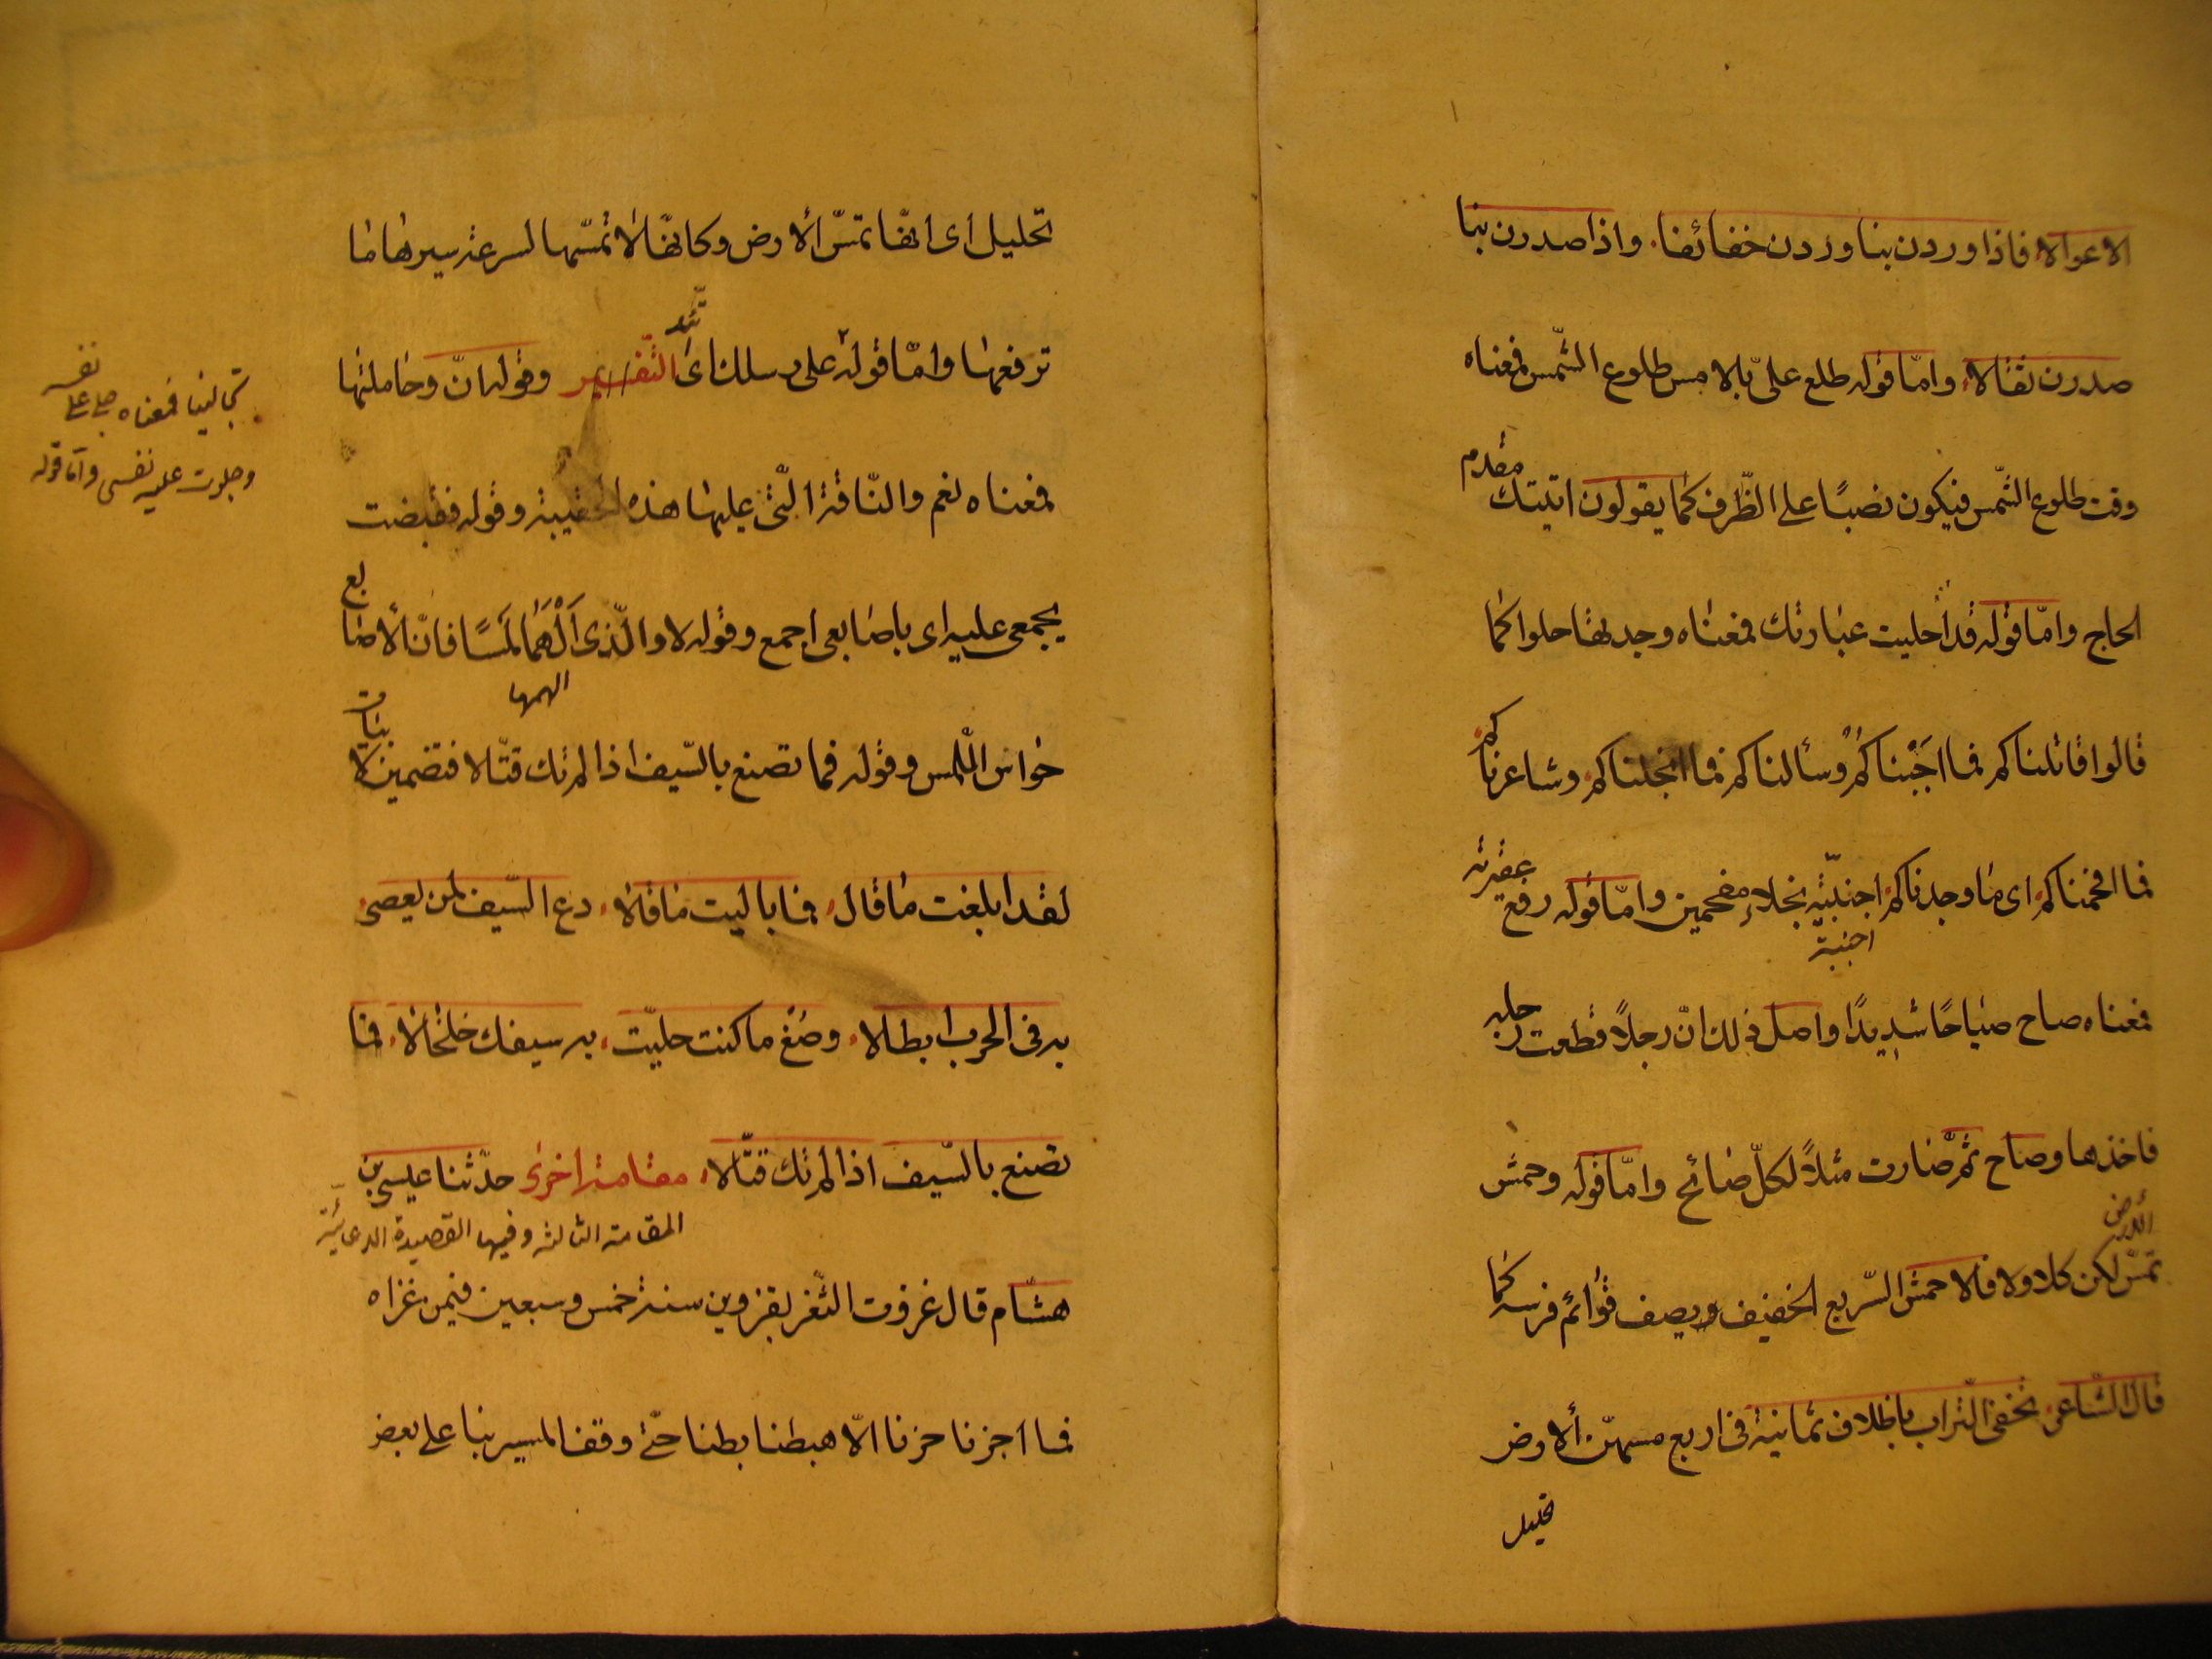 الاعوالا فاذا وردن بنا وردن خفائفا. واذا صدرن بنا
صدرن ثقالا، وامّا قوله طلع علىّ بالامس طلوع الشّمس فمعناه
وقت طلوع الشّمس فيكون نصبًا على الظّرف كما يقولون اتيتك مقدم
الحاج وامّا قوله قد احليت عبارتك فمعناه وجدتها حلوا كما
قالوا قاتلناكم فما اَجْبناكُمْ وسألناكم فما ابخلناكم وشاعرناكم
فما افحمناكم اى ما وجدناكم اجنبيّه بخلاء مفحمين وامّا قوله رفع عقيرته
اجنبية
فمعناه صاح صياحًا شديدًا واصل ذلك انّ رجلاً قطعت رجله
فاخذها وصاح ثمّ صارت مثلاً لكلّ صائح وامّا قوله وحمش
تمسّ لكن كلا ولا فالاحمش السّريع الخفيف ويصف قوائم فرسه كما
الارض
قال الشّاعر، تخفى التّراب باظلاف ثمانية فى اربع مسهنّ ألارض
تحليل
تحليل اى انهّا تمسّ ألارض وكانهّا لا تمسّها لسرعة سيرها ما
ترفعها وامّا قوله على رسلك اى التّفسير وقوله انّ وحاملتها
تئد
فمعناه نعم والنّاقة الّتى عليها هذه الحقيبة وقوله فقبضت
بجمعى عليه اى باصابعى اجمع وقوله لا والّذى اَلْهَمَا لَمسًا فانّ ألاصابع
الهمها
حواس اللّمس وقوله فما تصنع بالسّيف اذا لم تك قتّالا فتضمين لابيات
لقد ابلغت ما قال، فما باليت ما قالا، دع السّيف لمن يعصى،
به فى الحرب ابطالا، وصُغ ما كنت حليّت، به سيفك خلخالا، فما
تصنع بالسّيف اذا لم تك قتّالا، مقامة اخرى حدّثنا عيسى بن
المقامة الثالثه وفيها القصيدة الدعائيّة
هشّام قال غزوت الثّغر بقزوين سنة خمس وسبعين فيمن غزاه
فما اجزنا حزنا الّا هبطنا بطنا حتّى وقف المسير بنا على بعض
فمعناه على نفسه
وجلوت عليه نفسى وامّا قوله